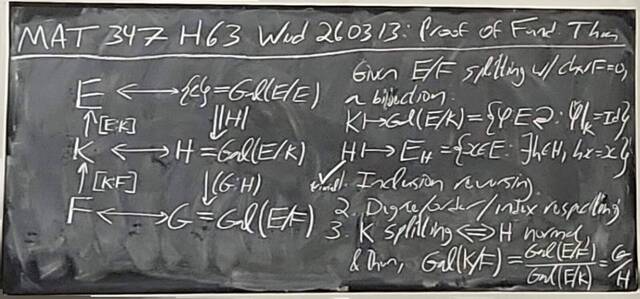 MAT 347 H63 Wed 260313: Proof of Fund Thm
E ⟷ {e} = Gal(E/E)
↑[E:K] ↓|H|
K ⟷ H = Gal(E/K)
↑[K:F] ↓(G:H)
F ⟷ G = Gal(E/F)
Given E/F splitting w/ char F=0,
a bijection:
K ↦ Gal(E/K) = {φ: E↺ : φ|_K = Id}
H ↦ E_H = {x∈E: ∃h∈H, hx=x}
1. Inclusion reversing
2. Degree/order/index respecting
3. K splitting ⟺ H normal
& then, Gal(K/F) = Gal(E/F)/Gal(E/K) = G/H